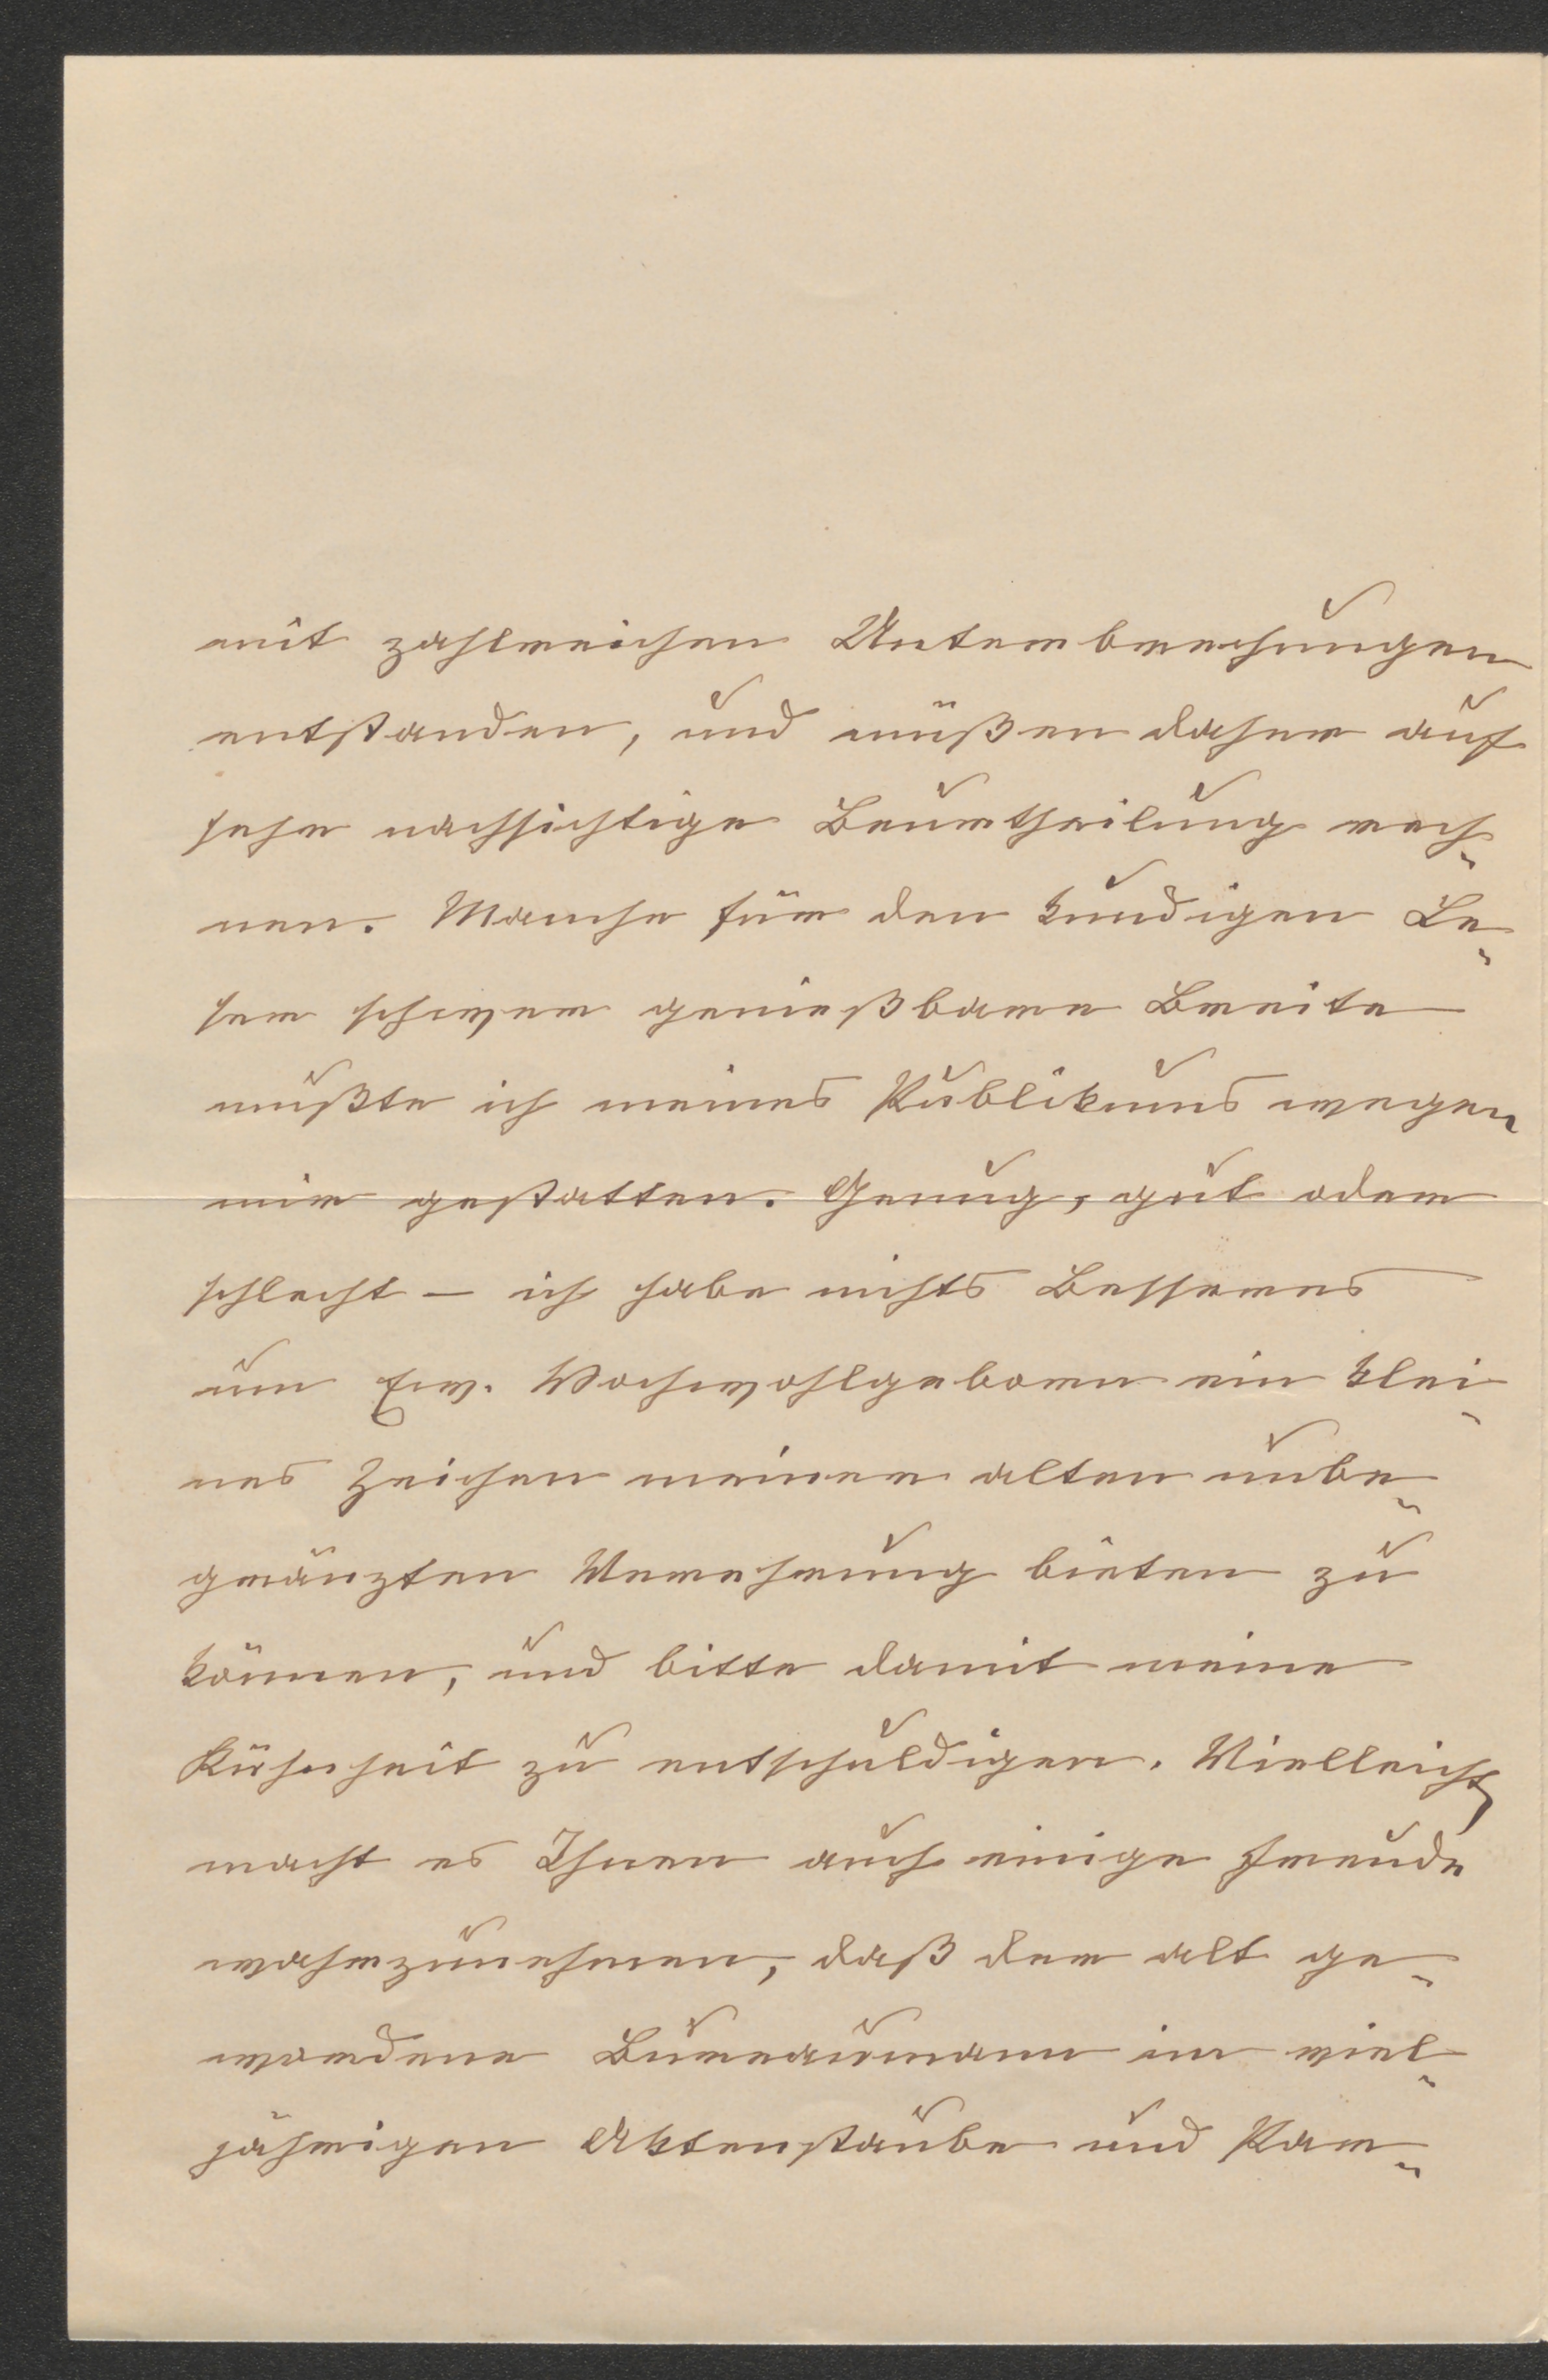 mit zahlreichen Unterbrechungen
entstanden, und müßen daher auf
sehr nachsichtige Beurtheilung rech-
nen. Manche für den kundigen Le-
ser schwer genießbare Breite
mußte ich meines Publikums wegen
mir gestatten. Genug, gut oder
schlecht – ich habe nichts Besseres
um Ew. Hochwohlgeboren ein klei-
nes Zeichen meiner alten unbe-
gränzten Verehrung bieten zu
können, und bitte damit meine
Kühnheit zu entschuldigen. Vielleicht
macht es Ihnen auch einige Freude
wahrzunehmen, daß der alt ge-
wordene Bureaumann im viel-
jährigen Aktenstaube und Par-